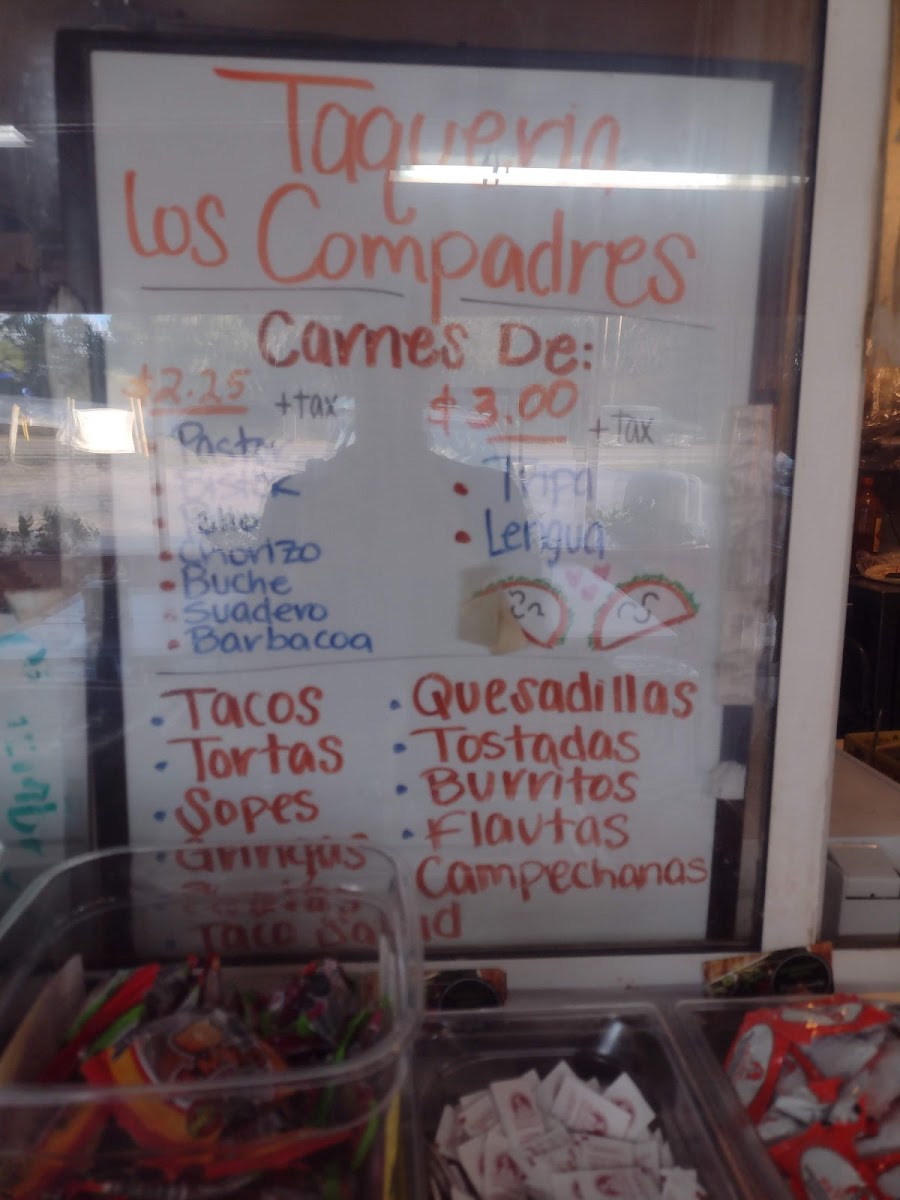 Taqueria
Los Compadres
Carnes De:
$2.25 +tax
Pastor
Bistek
Pollo
Chorizo
Buche
Suadero
Barbacoa
$3.00 +tax
Tripa
Lengua
Tacos
Tortas
Sopes
Gringas
Taco Salad
Quesadillas
Tostadas
Burritos
Flautas
Campechanas